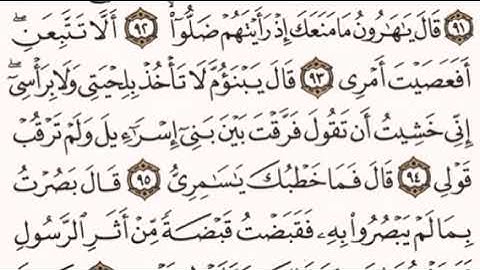 ﴿٩١﴾ قَالَ يَٰهَٰرُونُ مَا مَنَعَكَ إِذْ رَأَيْتَهُمْ ضَلُّوٓا۟ ﴿٩٢﴾ أَلَّا تَتَّبِعَنِ ۖ
أَفَعَصَيْتَ أَمْرِى ﴿٩٣﴾ قَالَ يَبْنَؤُمَّ لَا تَأْخُذْ بِلِحْيَتِى وَلَا بِرَأْسِىٓ ۖ
إِنِّى خَشِيتُ أَن تَقُولَ فَرَّقْتَ بَيْنَ بَنِىٓ إِسْرَٰٓءِيلَ وَلَمْ تَرْقُبْ
قَوْلِى ﴿٩٤﴾ قَالَ فَمَا خَطْبُكَ يَٰسَٰمِرِىُّ ﴿٩٥﴾ قَالَ بَصُرْتُ
بِمَا لَمْ يَبْصُرُوا۟ بِهِۦ فَقَبَضْتُ قَبْضَةً مِّنْ أَثَرِ ٱلرَّسُولِ